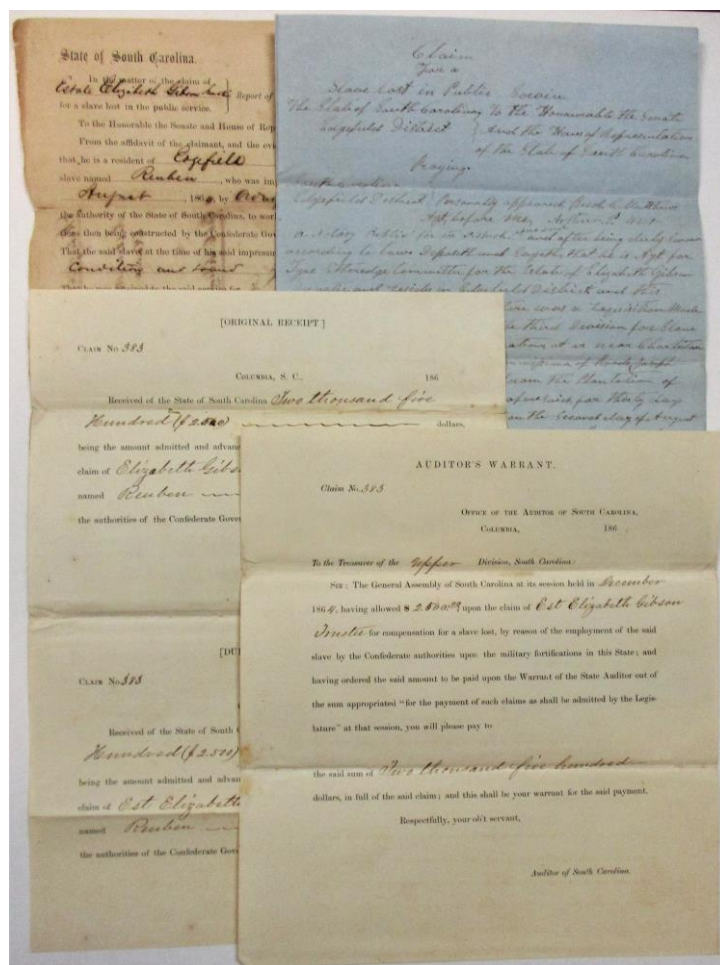 State of South Carolina.
In the matter of the claim of
Estate Elizabeth Gibson
Report of
for a slave lost in the public service.
To the Honorable the Senate and House of Rep
From the affidavit of the claimant, and the evi
that he is a resident of Edgefield
slave named Reuben , who was im
August , 1864, by
the authority of the State of South Carolina, to wor
then being constructed by the Confederate Gov
That the said slave at the time of his said impress
Condition and Sound
Claim
For a
Slave lost in Public Service
The State of South Carolina To the Honourable the Senate
Edgefield District And the House of Representatives
of the State of South Carolina
Praying
South Carolina
Edgefield District Personally appeared
Agt, before me,
a Notary Public for in and after being duly sworn
according to law Deposeth and Sayeth, that he is Agt for
Committee for the Estate of Elizabeth Gibson
and resides in Edgefield District and this
third Division for Slave
at or near Charleston
from the Plantation of
for thirty days
on the Second day of August
[ORIGINAL RECEIPT]
CLAIM NO 383
COLUMBIA, S. C., 186
Received of the State of South Carolina Two thousand five
Hundred ($2.500) dollars,
being the amount admitted and advanc
claim of Elizabeth Gibs
named Reuben
the authorities of the Confederate Gover
[DU
CLAIM NO 383
Received of the State of South
Hundred ($2.500)
being the amount admitted and advan
claim of Est Elizabeth
named Reuben
the authorities of the Confederate Gove
AUDITOR'S WARRANT.
Claim No. 383
OFFICE OF THE AUDITOR OF SOUTH CAROLINA,
COLUMBIA, 186 .
To the Treasurer of the Upper Division, South Carolina:
SIR: The General Assembly of South Carolina at its session held in December
1864, having allowed $ 2.500 00 upon the claim of Est Elizabeth Gibson
Trustee for compensation for a slave lost, by reason of the employment of the said
slave by the Confederate authorities upon the military fortifications in this State; and
having ordered the said amount to be paid upon the Warrant of the State Auditor out of
the sum appropriated "for the payment of such claims as shall be admitted by the Legis-
lature" at that session, you will please pay to
the said sum of Two thousand five hundred
dollars, in full of the said claim; and this shall be your warrant for the said payment.
Respectfully, your ob't servant,
Auditor of South Carolina.